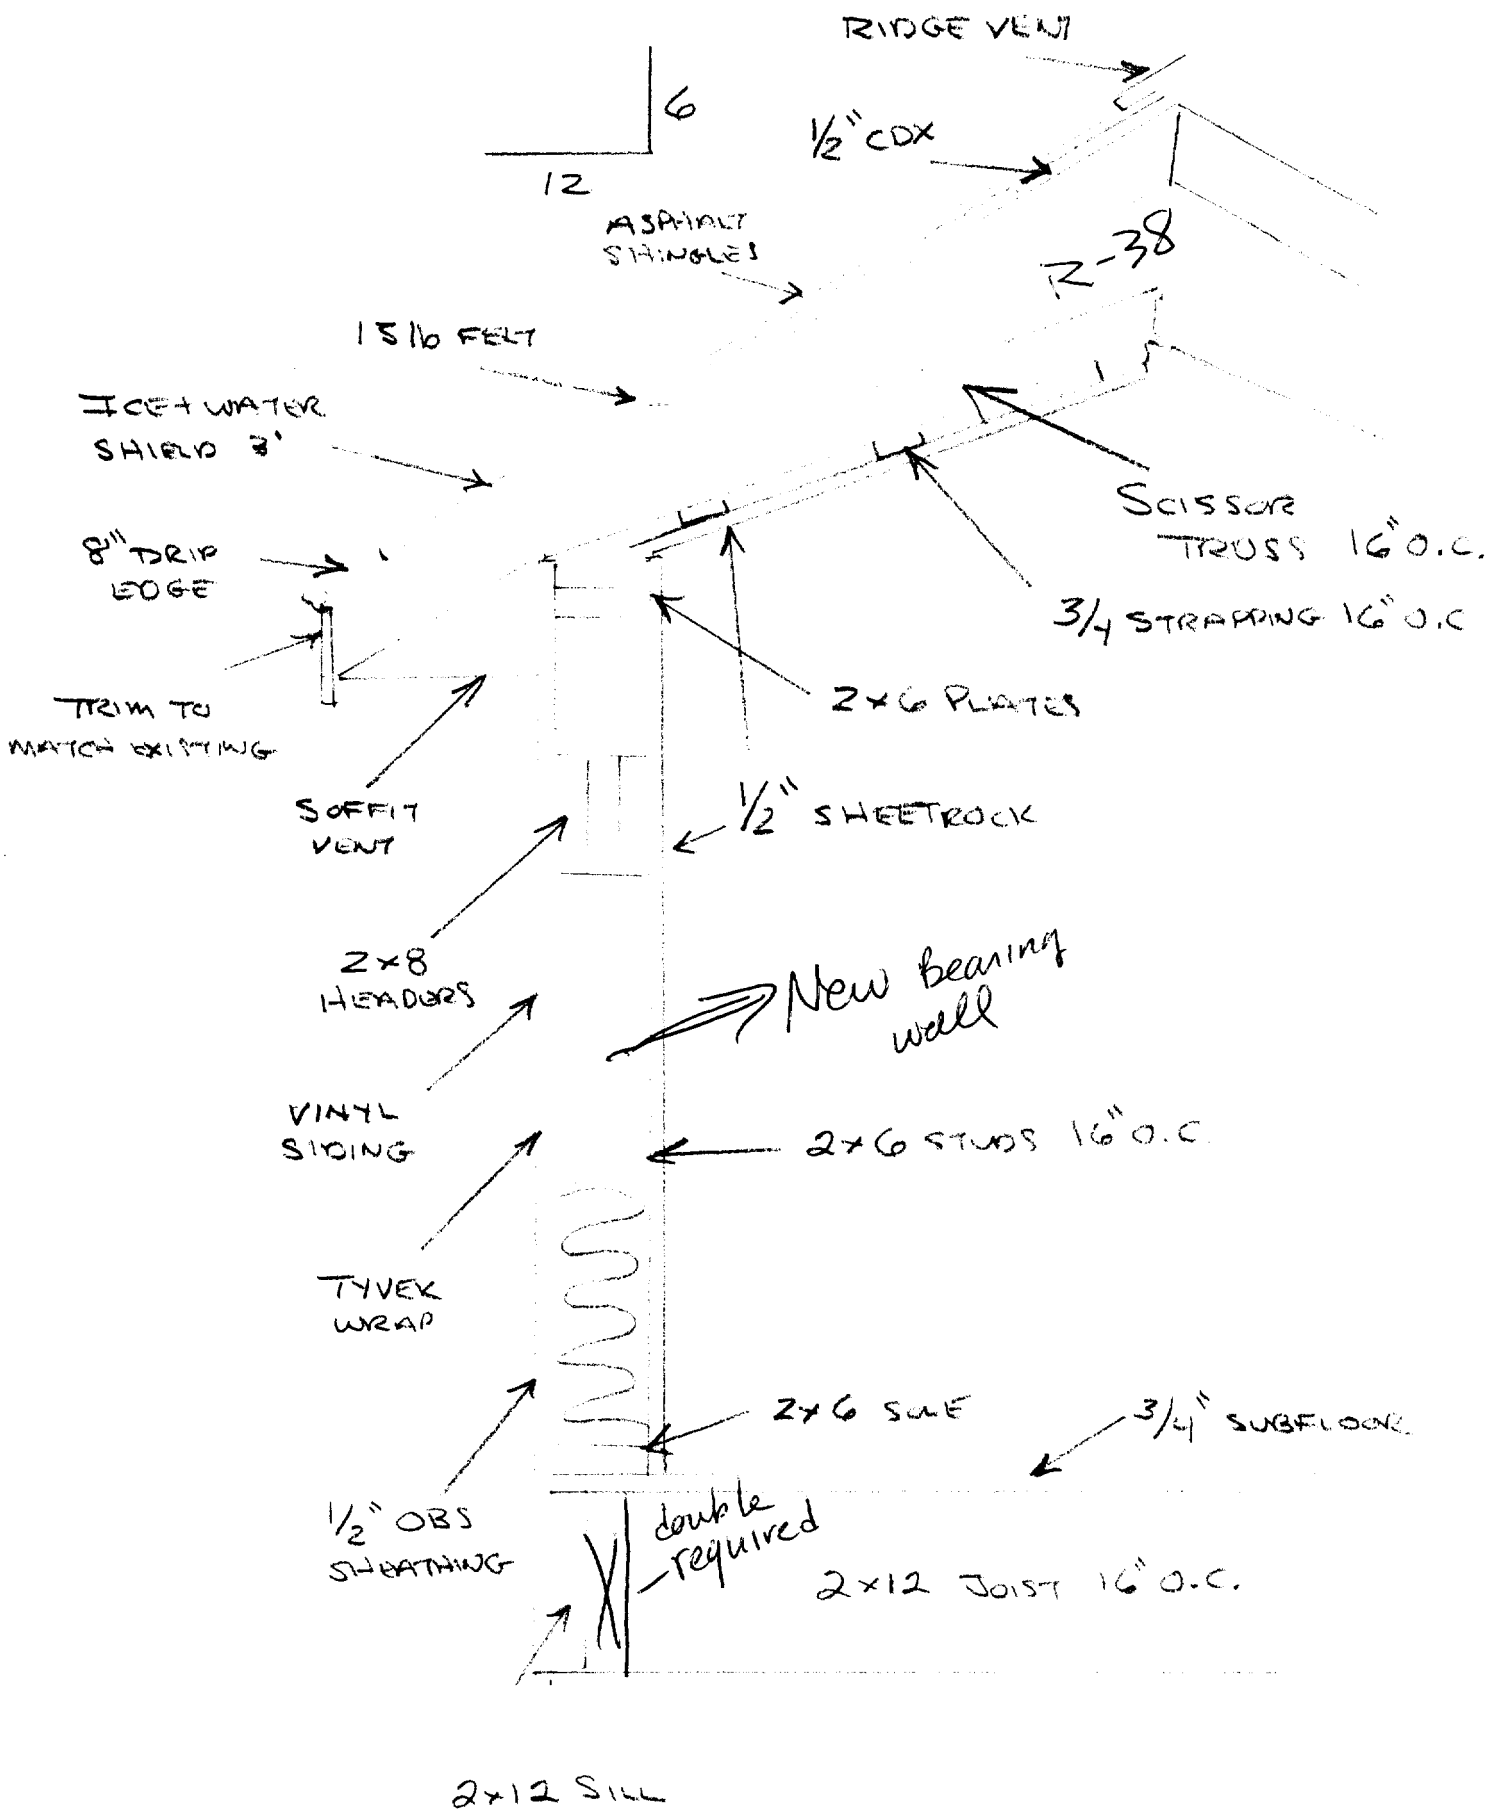 RIDGE VENT
6
12
1/2" CDX
ASPHALT
SHINGLES
R-38
15 lb FELT
ICE + WATER
SHIELD 3'
8" DRIP
EDGE
SCISSOR
TRUSS 16" O.C.
3/4 STRAPPING 16" O.C
TRIM TO
MATCH EXISTING
2x6 PLATES
SOFFIT
VENT
1/2" SHEETROCK
2x8
HEADERS
New Bearing
wall
VINYL
SIDING
2x6 STUDS 16" O.C.
TYVEK
WRAP
2x6 SOLE
3/4" SUBFLOOR
1/2" OBS
SHEATHING
double
required
2x12 JOIST 16" O.C.
2x12 SILL